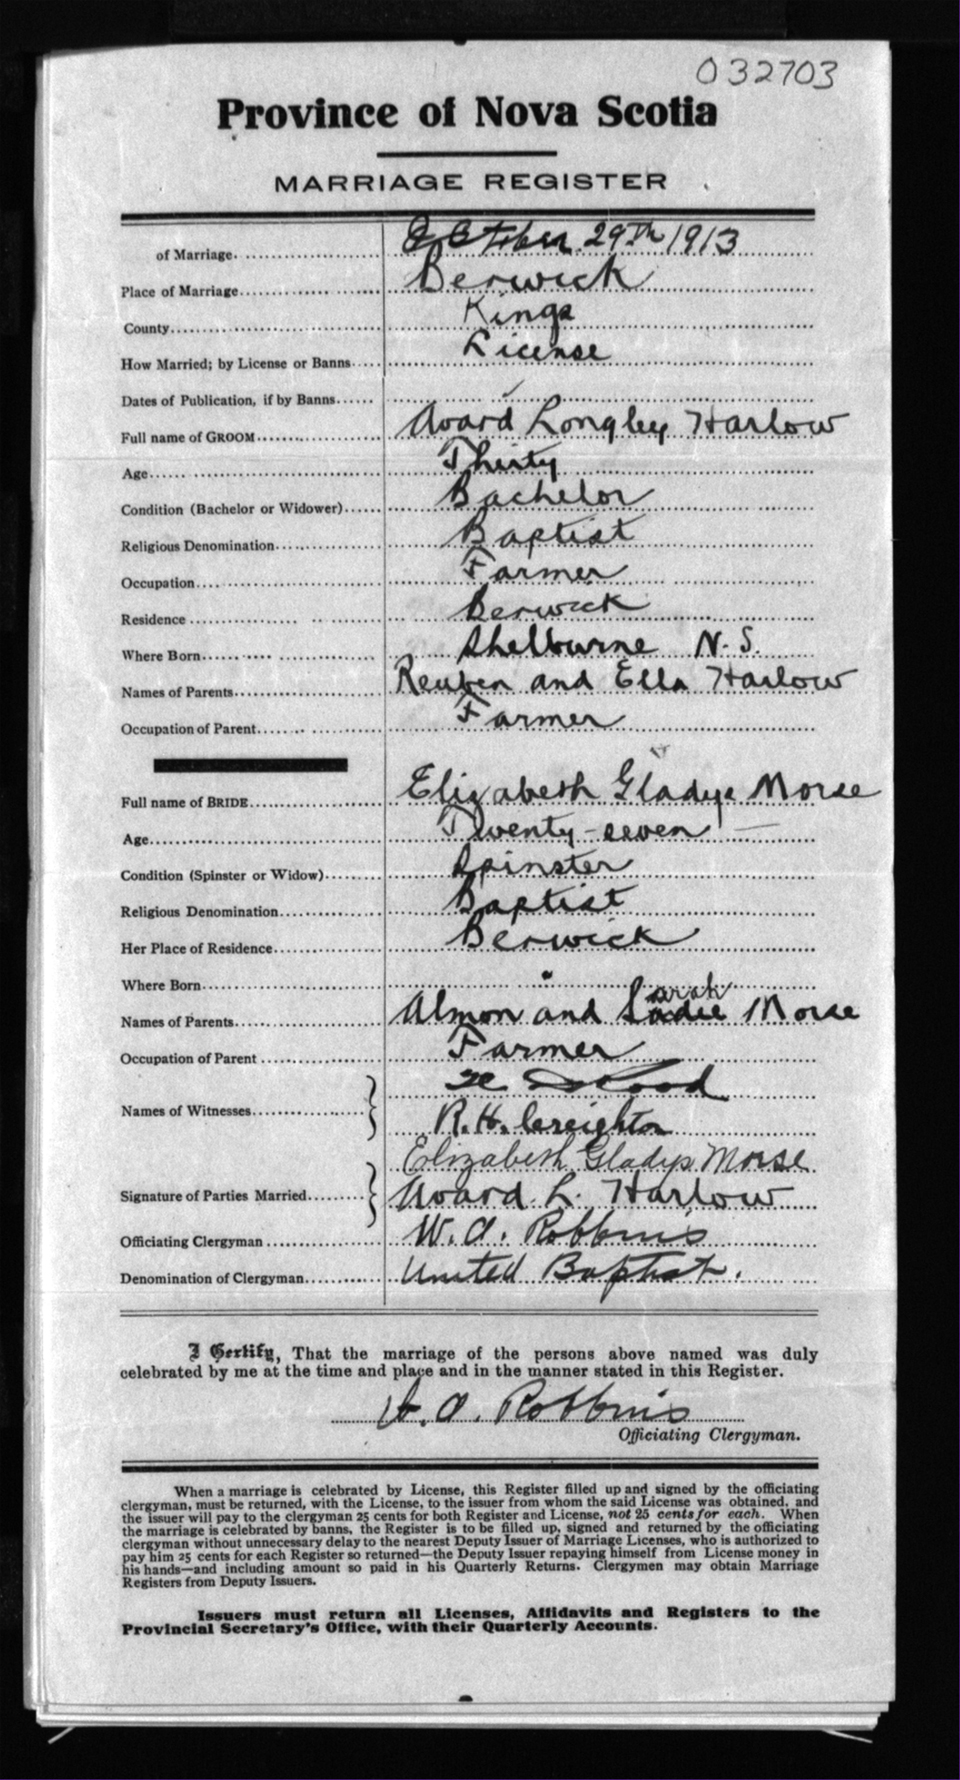 032703
Province of Nova Scotia
MARRIAGE REGISTER
of Marriage. October 29th 1913
Place of Marriage Berwick
County Kings
How Married; by License or Banns License
Dates of Publication, if by Banns
Full name of GROOM Avard Longley Harlow
Age Thirty
Condition (Bachelor or Widower) Bachelor
Religious Denomination Baptist
Occupation Farmer
Residence Berwick
Where Born Shelburne N.S.
Names of Parents Reuben and Ella Harlow
Occupation of Parent Farmer
Full name of BRIDE Elizabeth Gladys Morse
Age Twenty-seven
Condition (Spinster or Widow) Spinster
Religious Denomination Baptist
Her Place of Residence Berwick
Where Born
Names of Parents Almon and Sadie Sarah Morse
Occupation of Parent Farmer
Names of Witnesses
R. H. Creighton
Elizabeth Gladys Morse
Signature of Parties Married Avard L. Harlow
Officiating Clergyman W. A. Robbins
Denomination of Clergyman United Baptist.
I Certify, That the marriage of the persons above named was duly
celebrated by me at the time and place and in the manner stated in this Register.
W. A. Robbins
Officiating Clergyman.
When a marriage is celebrated by License, this Register filled up and signed by the officiating
clergyman, must be returned, with the License, to the issuer from whom the said License was obtained, and
the issuer will pay to the clergyman 25 cents for both Register and License, not 25 cents for each. When
the marriage is celebrated by banns, the Register is to be filled up, signed and returned by the officiating
clergyman without unnecessary delay to the nearest Deputy Issuer of Marriage Licenses, who is authorized to
pay him 25 cents for each Register so returned—the Deputy Issuer repaying himself from License money in
his hands—and including amount so paid in his Quarterly Returns. Clergymen may obtain Marriage
Registers from Deputy Issuers.
Issuers must return all Licenses, Affidavits and Registers to the
Provincial Secretary's Office, with their Quarterly Accounts.